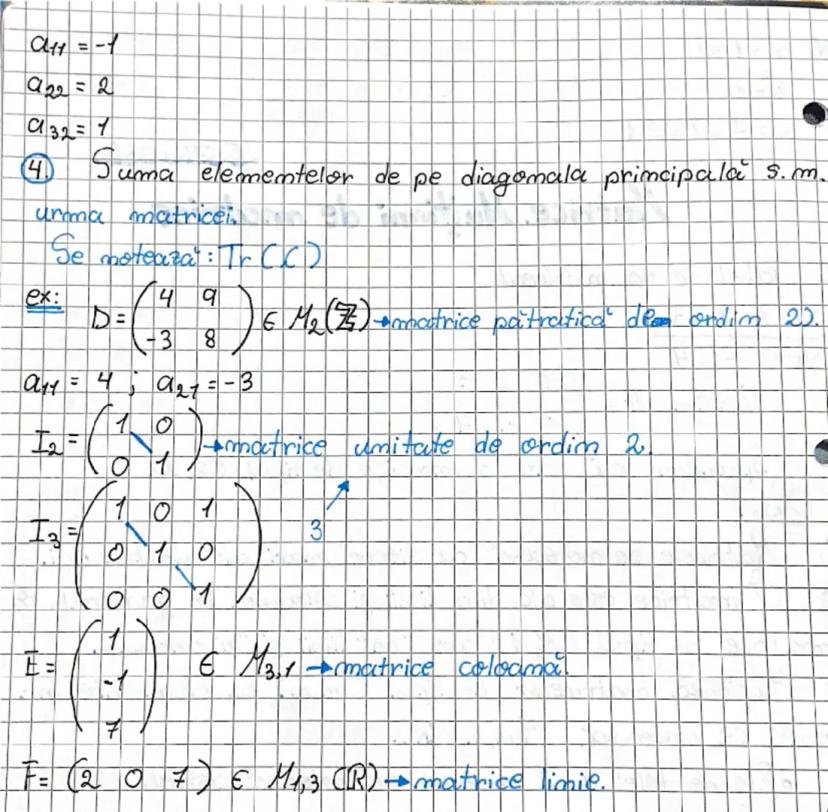 a11 = -1
a22 = 2
a32 = 1
4. Suma elementelor de pe diagonala principală s.m.
urma matricei.
Se notează: Tr(C)
ex: D = ( 4 9
-3 8 ) ∈ M2(ℤ) → matrice pătratică de ordim 2).
a11 = 4 ; a21 = -3
I2 = ( 1 0
0 1 ) → matrice unitate de ordim 2.
3
I3 = ( 1 0 1
0 1 0
0 0 1 )
E = ( 1
-1
7 ) ∈ M3,1 → matrice coloamă.
F = (2 0 7) ∈ M1,3 (ℝ) → matrice limie.